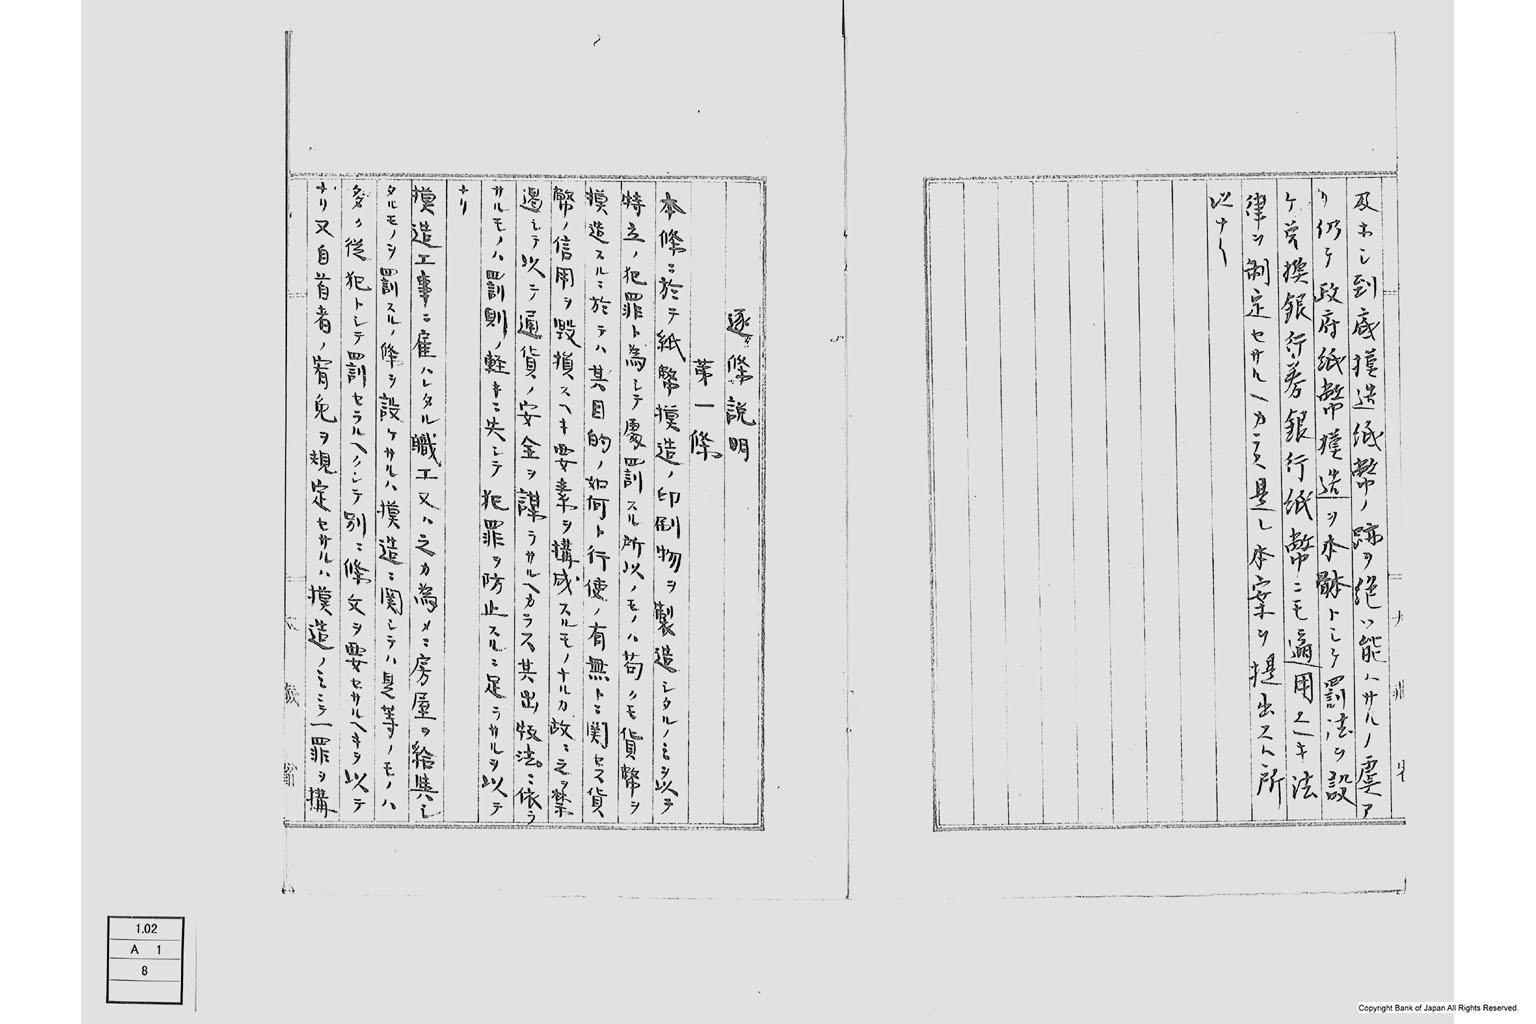 及ホシ到底摸造紙幣ノ跡ヲ絶ツ能ハサルノ虞ア
リ仍テ政府紙幣摸造ヲ本體トシテ罰法ヲ設
ケ兌換銀行券銀行紙幣ニモ適用スヘキ法
律ヲ制定セサルヘカラス是レ本案ヲ提出スル所
以ナリ
逐條説明
第一條
本條ニ於テ紙幣摸造ノ印刷物ヲ製造シタルノミヲ以テ
特立ノ犯罪ト為シテ處罰スル所以ノモノハ苟クモ貨幣ヲ
摸造スルニ於テハ其目的ノ如何ト行使ノ有無トニ関セス貨
幣ノ信用ヲ毀損スヘキ要素ヲ構成スルモノナルカ故ニ之ヲ禁
遏シテ以テ通貨ノ安全ヲ謀ラサルヘカラス其出版法ニ依ラ
サルモノハ罰則ノ軽キニ失シテ犯罪ヲ防止スルニ足ラサルヲ以テ
ナリ
摸造工事ニ雇ハレタル職工又ハ之カ為メニ房屋ヲ給與シ
タルモノヲ罰スルノ條ヲ設ケサルハ摸造ニ関シテハ是等ノモノハ
多ク従犯トシテ罰セラルヘクシテ別ニ條文ヲ要セサルヘキヲ以テ
ナリ又自首者ノ宥免ヲ規定セサルハ摸造ノミニテ一罪ヲ構
大蔵省
1.02
A 1
8
Copyright Bank of Japan All Rights Reserved.